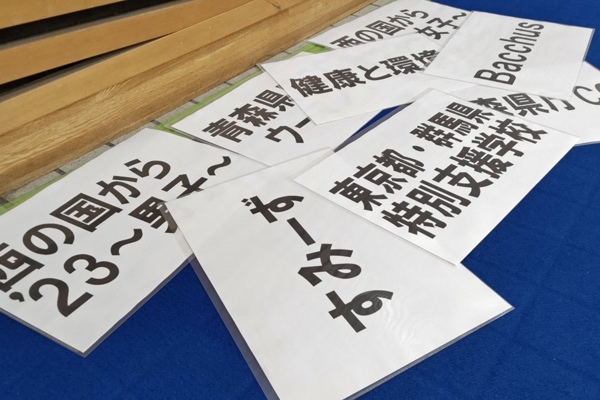 西の国から
女子～
Bacchus
健康と環
青森県
ウー
東京都・群馬県
特別支援学校
西の国から
'23～男子～
ずーみす